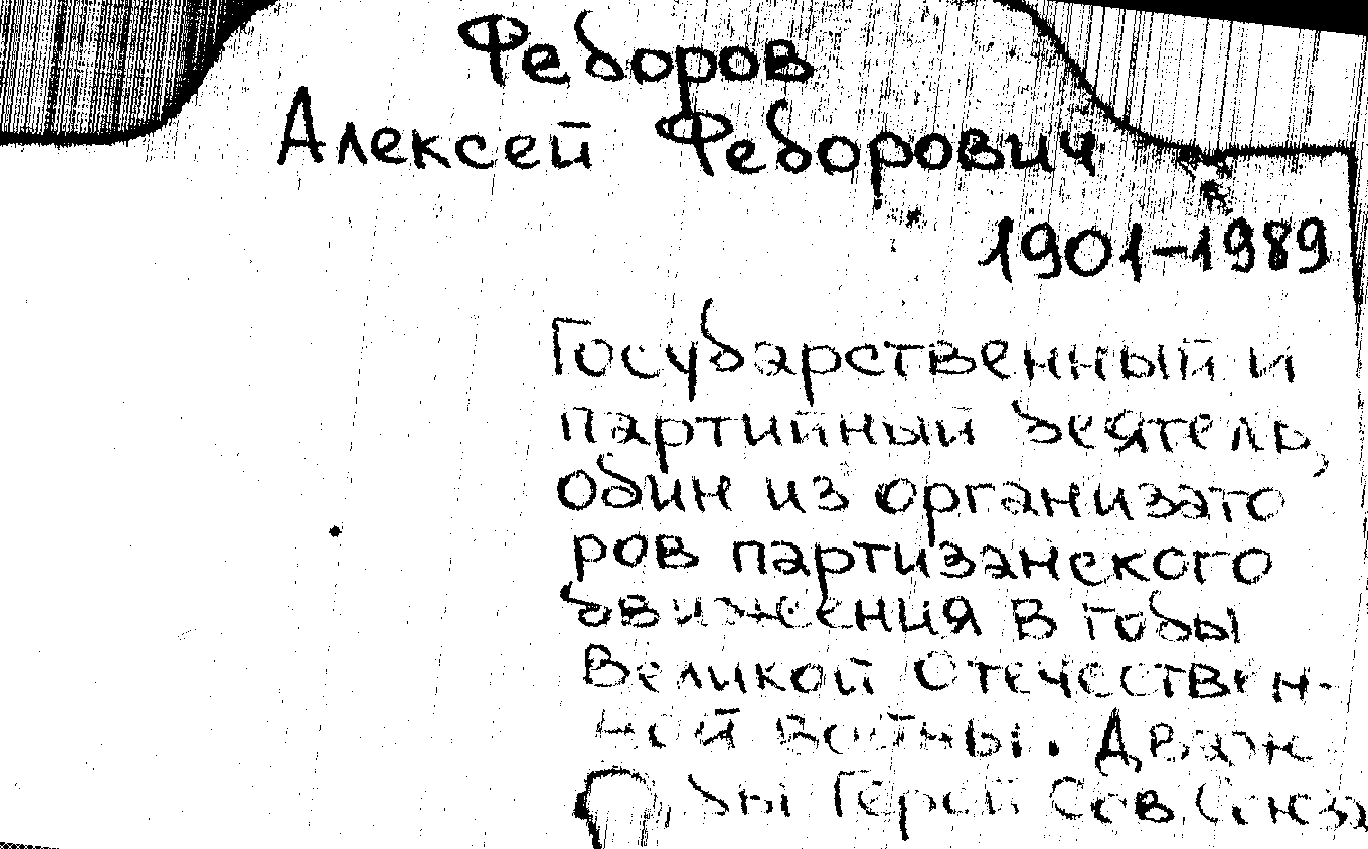 Федоров
Алексей Федорович
1901-1989
Государственный и
партийный деятель,
один из организато
ров партизанского
движения в годы
Великой Отечествен-
ной войны. Дваж
ды Герой Сов Союза